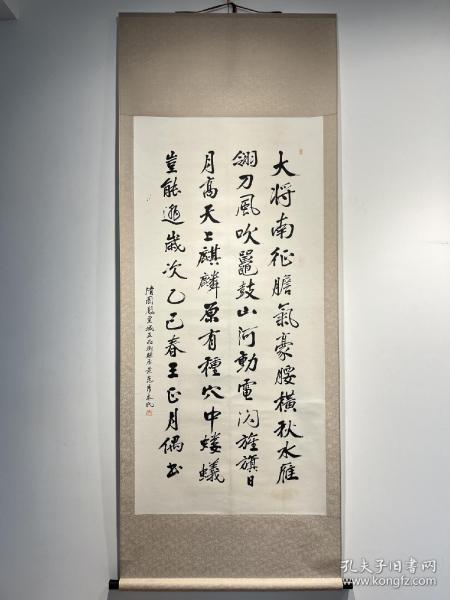 大将南征膽氣豪腰橫秋水雁
翎刀風吹鼉鼓山河動電闪旌旗日
月高天上麒麟原有種穴中螻蟻
豈能逃歲次乙巳春王正月偶书
孔夫子旧书网
www.kongfz.com